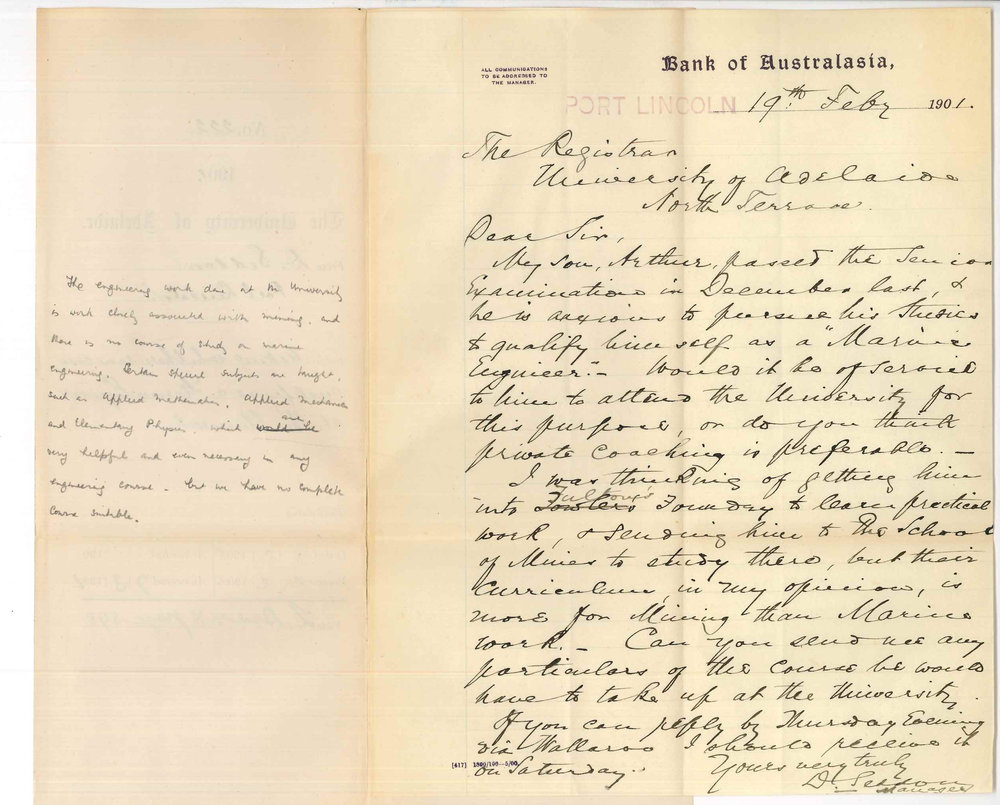 The engineering work done at the University
is work closely associated with mining, and
there is no course of study on marine
engineering. Certain special subjects are taught,
such as Applied Mathematics, Applied Mechanics
and Elementary Physics which would be are
very helpful and even necessary in any
engineering course - but we have no complete
course suitable.
ALL COMMUNICATIONS
TO BE ADDRESSED TO
THE MANAGER.
Bank of Australasia,
PORT LINCOLN 19th Feby 1901.
The Registrar
University of Adelaide
North Terrace.
Dear Sir,
My son, Arthur, passed the Senior
Examination in December last, &
he is anxious to pursue his Studies
to qualify himself as a "Marine
Engineer". - Would it be of service
to him to attend the University for
this purpose, or do you think
private coaching is preferable. -
I was thinking of getting him
into Fowlers Fultons Foundry to learn practical
work, & sending him to the School
of Mines to study there, but their
curriculum, in my opinion, is
more for Mining than Marine
work. - Can you send me any
particulars of the course he would
have to take up at the University.
If you can reply by Thursday Evening
via Wallaroo I should receive it
on Saturday.
Yours very truly
D. Seddon
Manager
[417] 1300/100—5/00.
No. 222
The University of Adelaide.